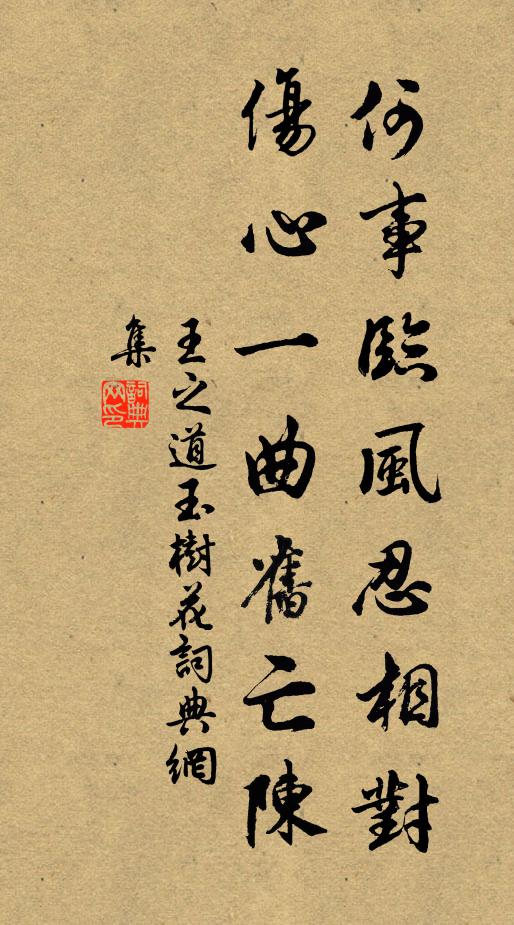 何事臨風忍相對
傷心一曲舊亡陳
王之道玉樹花詞典網
集
詞典
网印